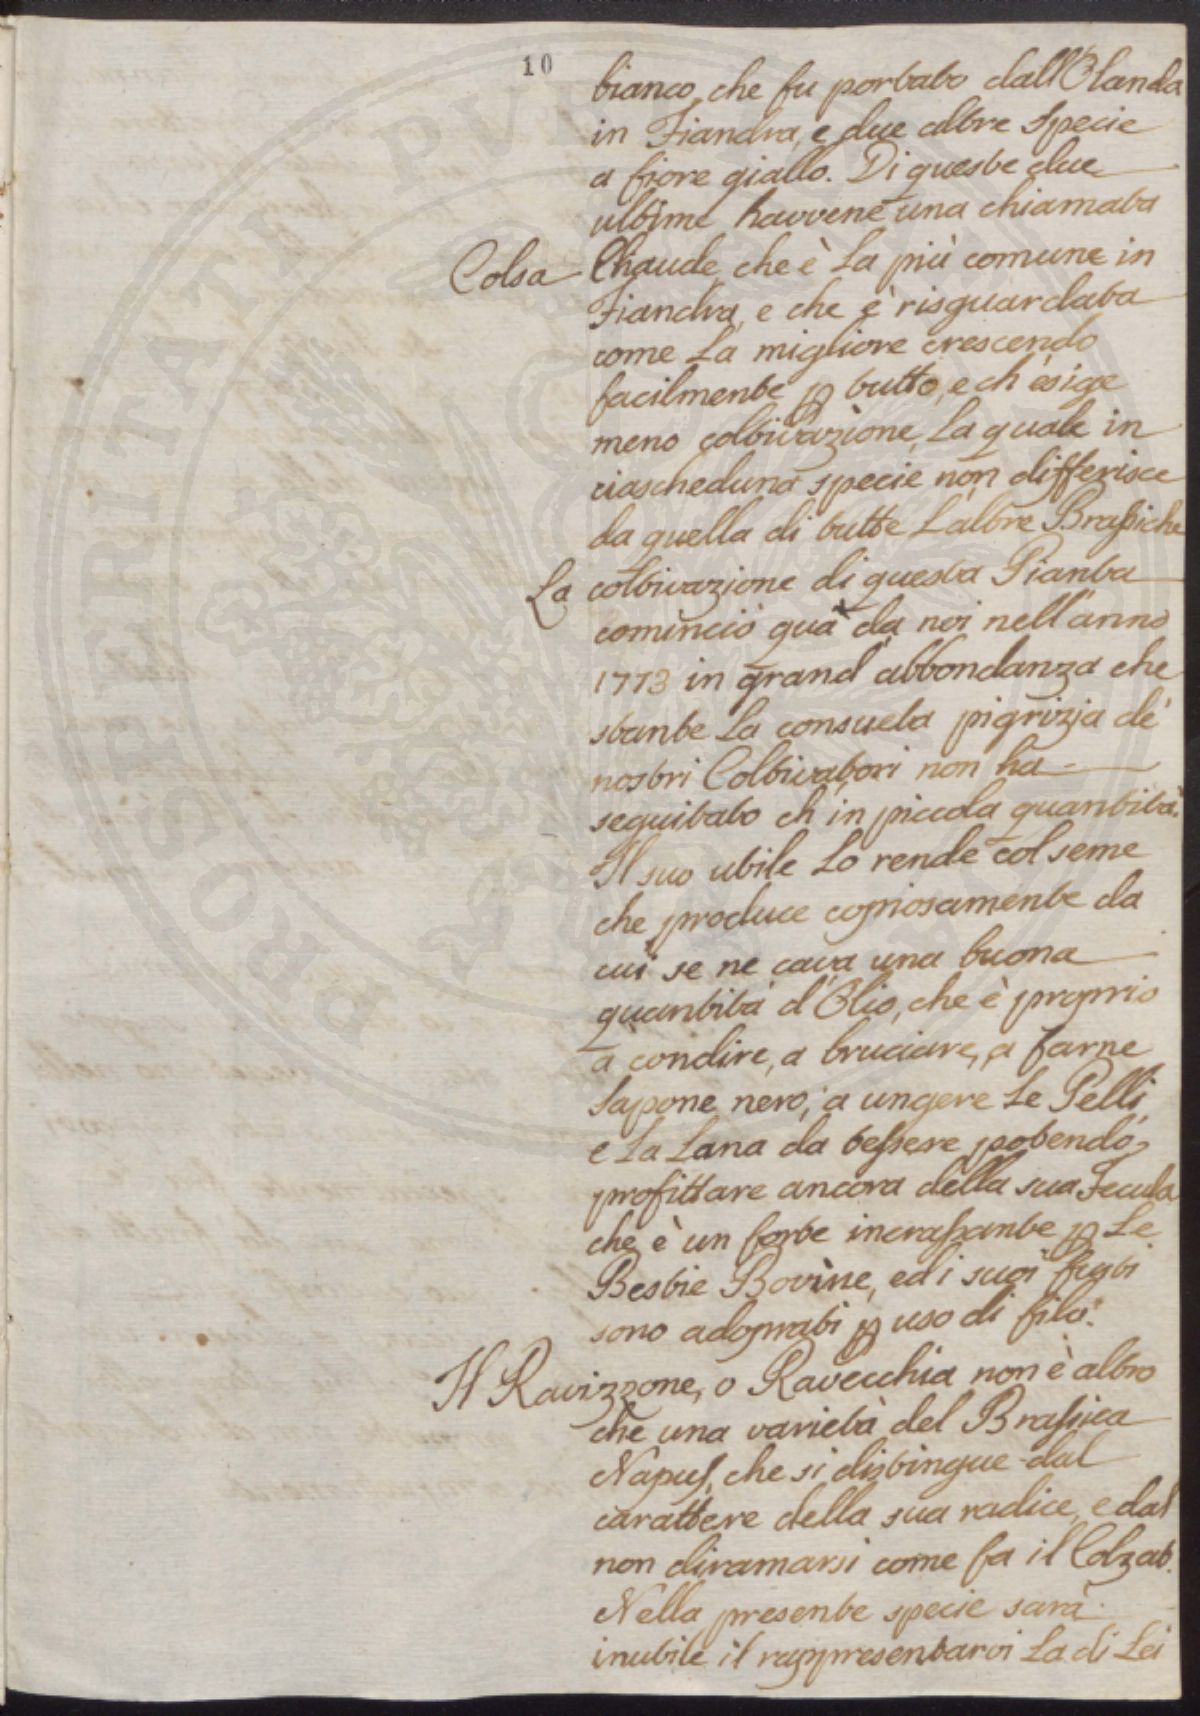 10
bianco, che fu portato dall'Olanda
in Fiandra, e due altre specie
a fiore giallo. Di queste due
ultime havvene una chiamata
Colsa Chaude, che è la più comune in
Fiandra, e che è risguardata
come la migliore crescendo
facilmente p tutto, e ch'esige
meno coltivazione, la quale in
ciascheduna specie non differisce
da quella di tutte l'altre Brassiche
La coltivazione di questa Pianta
cominciò quà da noi nell'anno
1773 in grand'abbondanza che
stante la consueta pigrizia de'
nostri Coltivatori non ha
seguitato ch'in piccola quantità.
Il suo utile lo rende col seme
che produce copiosamente da
cui se ne cava una buona
quantità d'Olio, che è proprio
a condire, a bruciare, a farne
sapone nero, a ungere le Pelli,
e la Lana da tessere potendo
profittare ancora della sua Fecula,
che è un forte incrassante p le
Bestie Bovine, ed i suoi fusti
sono adoprati p uso di filo.
Il Ravizzone, o Ravecchia non è altro
che una varietà del Brassica
Napus, che si distingue dal
carattere della sua radice, e dal
non diramarsi come fa il Colzat.
Nella presente specie sarà
inutile il rappresentarvi la di lei
PROSPERITATI PVB